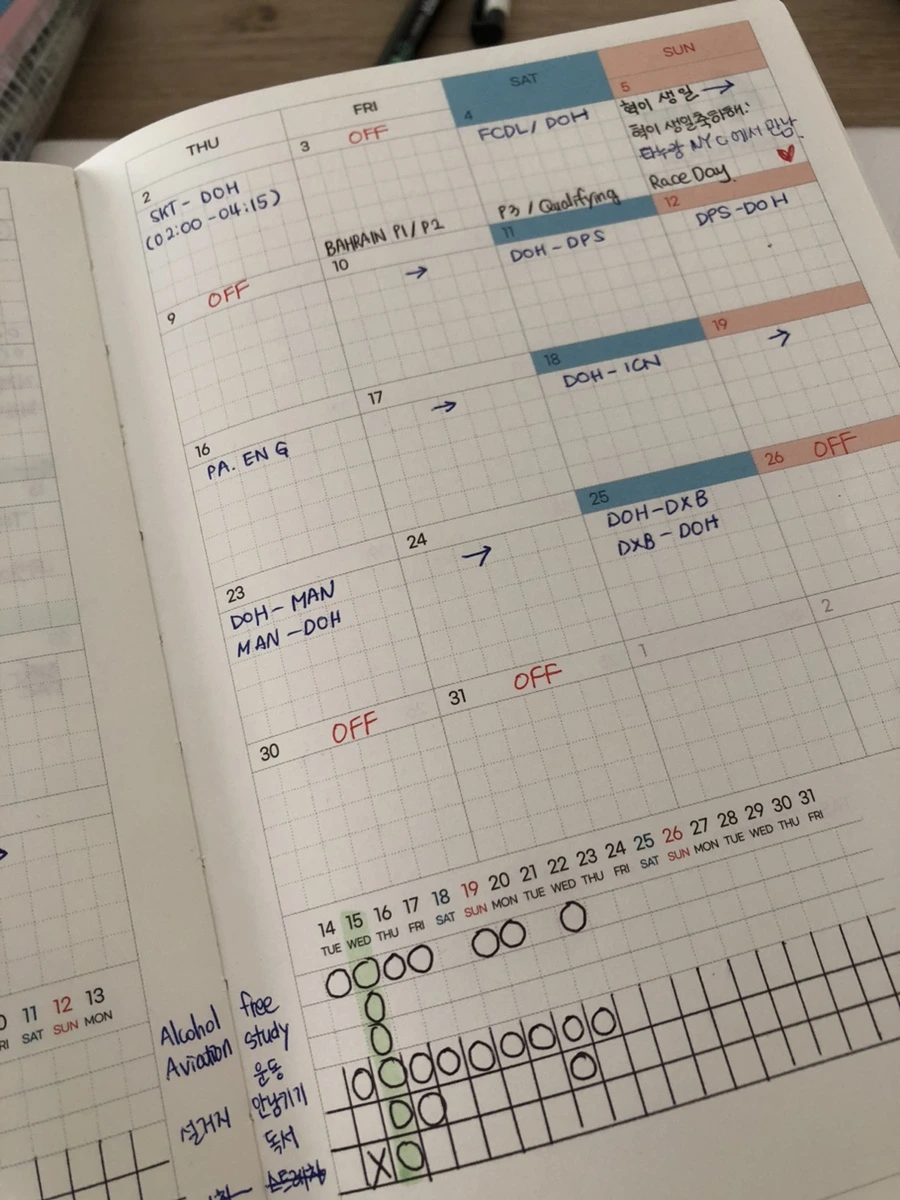 THU
FRI
SAT
SUN
2
SKT - DOH
(02:00 - 04:15)
3 OFF
BAHRAIN P1/P2
4
FCDL / DOH
P3 / Qualifying
5
혁이 생일 →
혁이 생일축하해!
NYC에서 만남
Race Day
9 OFF
10 →
11
DOH - DPS
12
DPS - DOH
16
PA. ENG
17 →
18
DOH - ICN
19 →
23
DOH - MAN
MAN - DOH
24 →
25
DOH - DXB
DXB - DOH
26 OFF
30 OFF
31 OFF
1
2
14 15 16 17 18 19 20 21 22 23 24 25 26 27 28 29 30 31
TUE WED THU FRI SAT SUN MON TUE WED THU FRI SAT SUN MON TUE WED THU FRI
11 12 13
SAT SUN MON
Alcohol free
Aviation study
운동
설거지 안남기기
독서
스트레칭